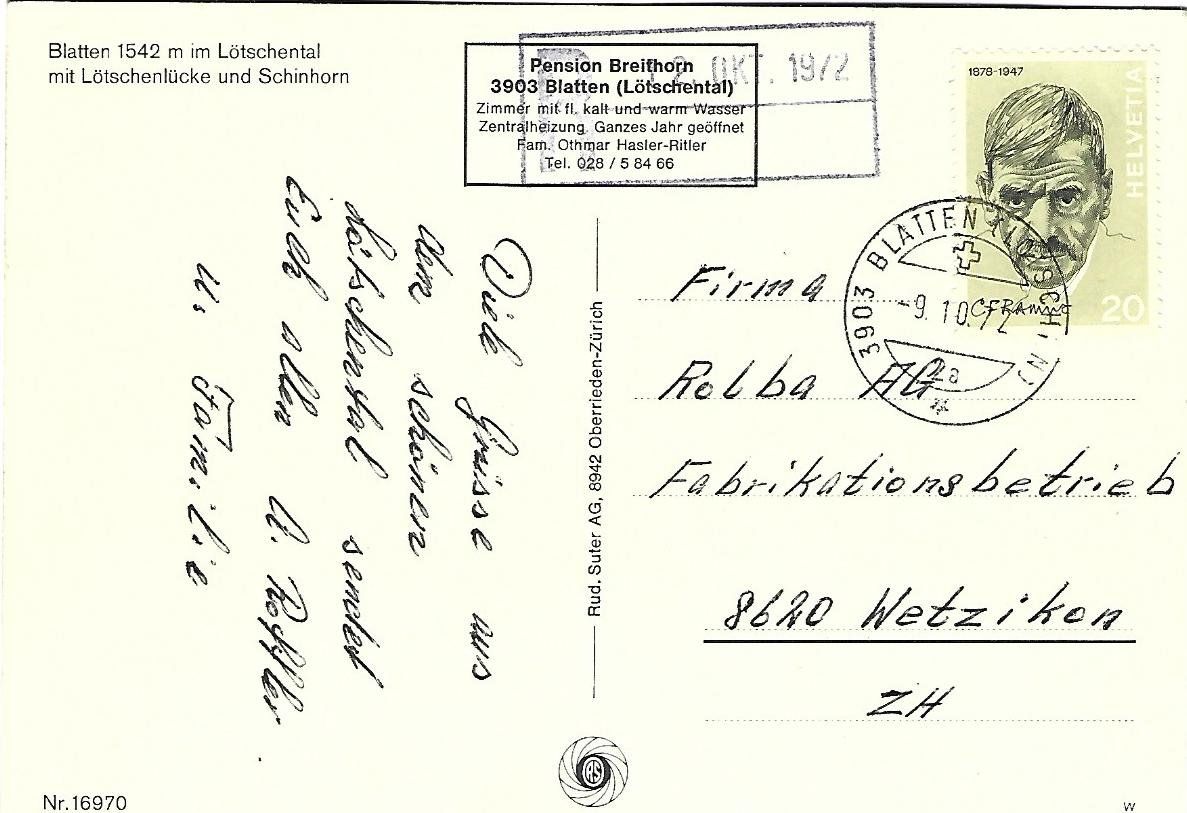 Blatten 1542 m im Lötschental
mit Lötschenlücke und Schinhorn
Pension Breithorn
3903 Blatten (Lötschental)
Zimmer mit fl. kalt und warm Wasser
Zentralheizung Ganzes Jahr geöffnet
Fam. Othmar Hasler-Ritler
Tel. 028 / 5 84 66
2. OKT. 1972
1878-1947
HELVETIA
20
3903 BLATTEN
-9.10.72
Viele Grüsse aus
dem schönen
Lötschental sendet
Euch allen
u. Familie
Rud. Suter AG, 8942 Oberrieden-Zürich
Firma
Rolba AG
Fabrikationsbetrieb
8620 Wetzikon
ZH
Nr. 16970
W